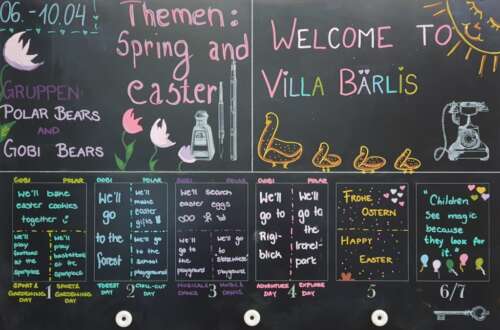 06. - 10.04!
Themen:
Spring and
easter!
GRUPPEN:
POLAR BEARS
AND
GOBI BEARS
WELCOME TO
VILLA BÄRLIS
GOBI POLAR
We'll bake
easter cookies
together
We'll
play
We'll
play
basketball
at the
1
SPORT &
GARDENING
DAY
SPORTS &
GARDENING
DAY
GOBI POLAR
We'll
go
to the
forest
We'll
make
easter
gifts
We'll
go to the
school
playground
2
FOREST
DAY
CHILL-OUT
DAY
GOBI POLAR
We'll search
easter eggs
We'll
go to
the
playground
We'll
go
to
3
MUSIC & DANCE
DAY
GOBI POLAR
We'll
go to
Rigi-
blick
We'll
go to
the
Irchel-
park
4
ADVENTURE
DAY
EXPLORE
DAY
FROHE
OSTERN
HAPPY
EASTER
5
"Children
See magic
because
they look
for it"
6/7